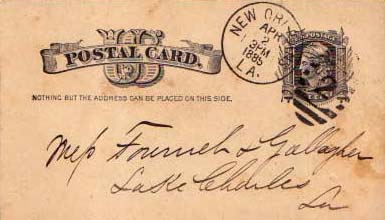 NEW ORL
APR
3PM
1885
LA.
POSTAGE
US
POSTAL CARD.
NOTHING BUT THE ADDRESS CAN BE PLACED ON THIS SIDE.
Mess Fournet & Gallagher
Lake Charles
La